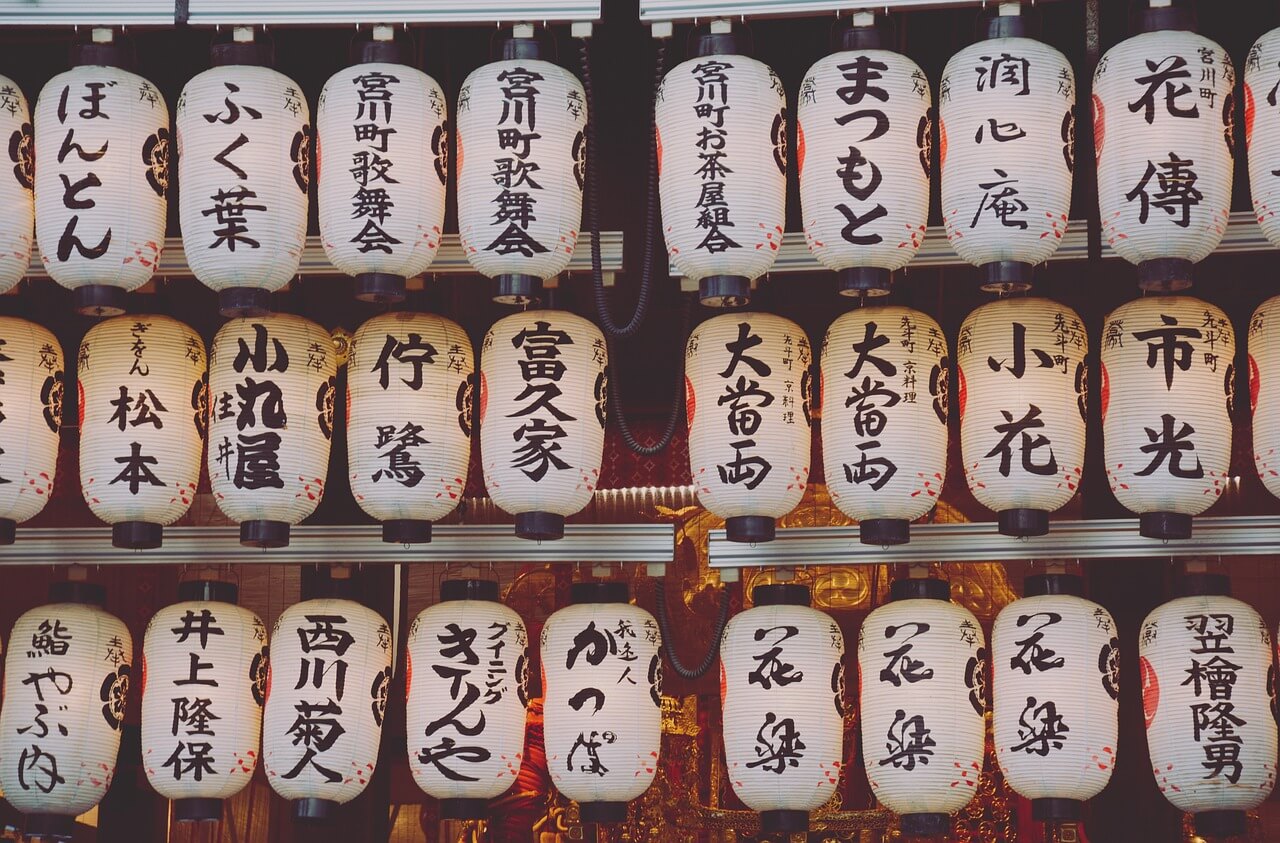 ぼんとん
ふく葉
宮川町歌舞会
宮川町歌舞会
宮川町お茶屋組合
まつもと
潤心庵
宮川町
花傳
ぎをん
松本
小丸屋
住井
佇鷺
富久家
先斗町 京料理
大當両
先斗町 京料理
大當両
先斗町
小花
先斗町
市光
鮨やぶ内
井上隆保
西川菊人
ダイニング
きりんや
かつ
花梁
花梁
花梁
翌檜隆男